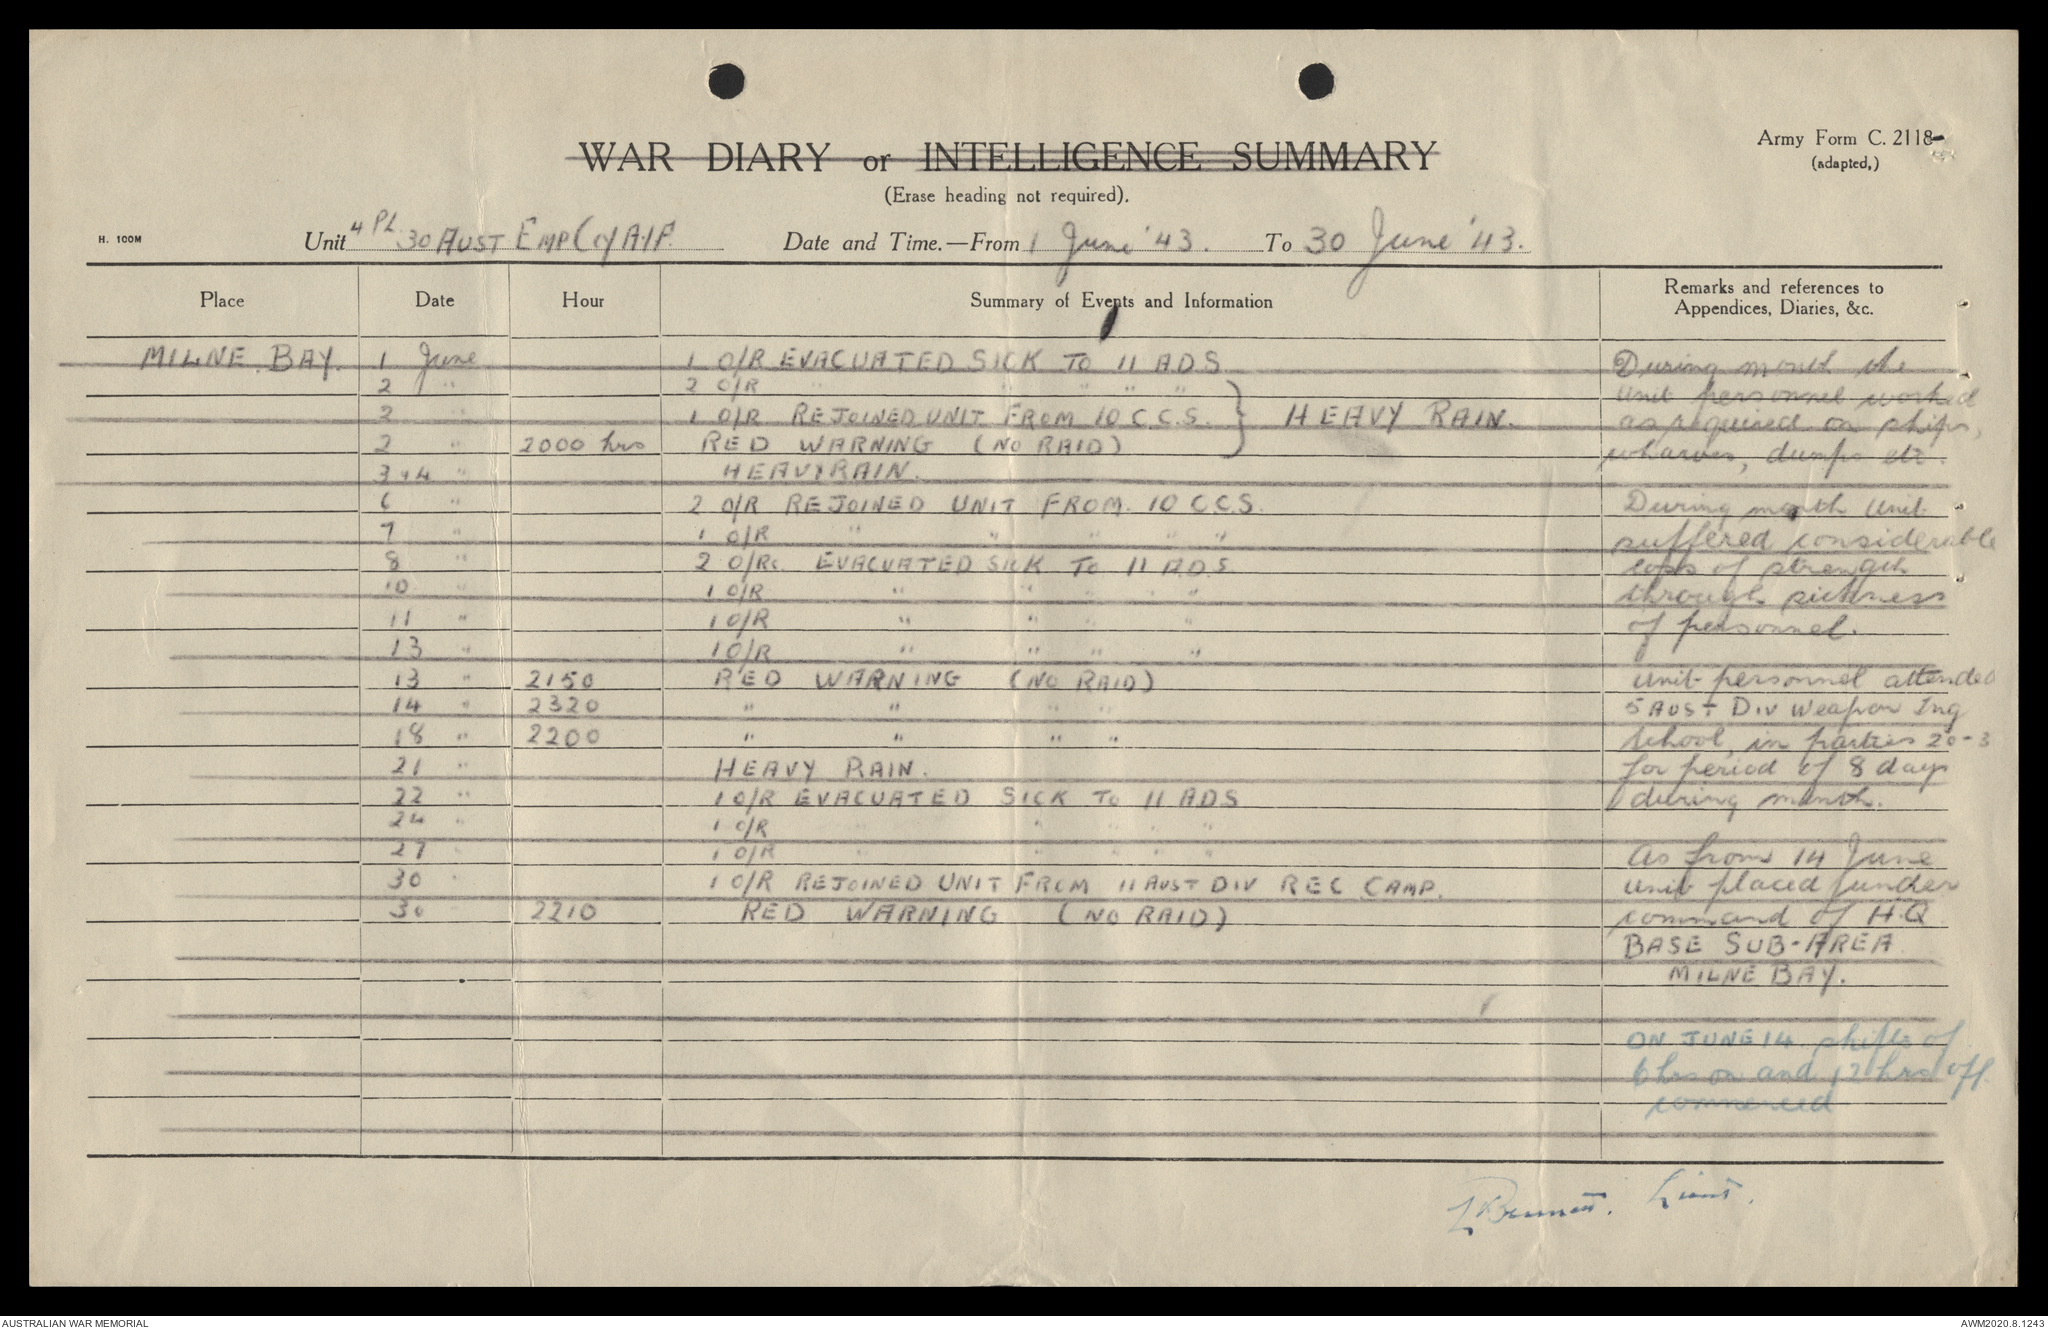 Army Form C. 2118
(adapted,)
WAR DIARY or INTELLIGENCE SUMMARY
(Erase heading not required).
H. 100M
Unit 4 Pl. 30 AUST EMP Coy A.I.F. Date and Time.—From 1 June '43. To 30 June '43.
Place Date Hour Summary of Events and Information Remarks and references to Appendices, Diaries, &c.
MILNE BAY. 1 June 1 O/R EVACUATED SICK TO 11 ADS
2 " 2 O/R " " " " "
2 " 1 O/R REJOINED UNIT FROM 10 C.C.S. } HEAVY RAIN.
2 " 2000 hrs RED WARNING (NO RAID)
3 + 4 " HEAVY RAIN.
6 " 2 O/R REJOINED UNIT FROM 10 C.C.S.
7 " 1 O/R " " " " "
8 " 2 O/Rs. EVACUATED SICK TO 11 A.D.S.
10 " 1 O/R " " " " "
11 " 1 O/R " " " "
13 " 1 O/R " " " "
13 " 2150 RED WARNING (NO RAID)
14 " 2320 " " " "
18 " 2200 " " " "
21 " HEAVY RAIN.
22 " 1 O/R EVACUATED SICK TO 11 ADS
24 " 1 O/R " " " " "
27 " 1 O/R " " " " "
30 " 1 O/R REJOINED UNIT FROM 11 AUST DIV REC CAMP.
30 " 2210 RED WARNING (NO RAID)
During month the
Unit personnel worked
as required on ships,
wharves, dumps etc.
During month Unit
suffered considerable
loss of strength
through sickness
of personnel.
Unit personnel attended
5 AUST DIV Weapon Tng
School, in parties 20-3
for period of 8 days
during month.
As from 14 June
Unit placed under
command of H.Q
BASE SUB-AREA
MILNE BAY.
ON JUNE 14 shifts of
6 hrs on and 12 hrs off
commenced
Bennett. Lieut.
AUSTRALIAN WAR MEMORIAL AWM2020.8.1243